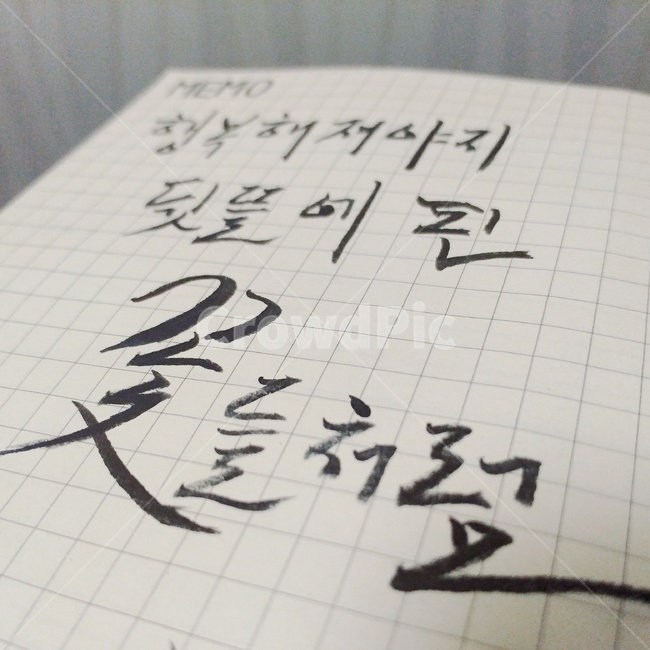 MEMO
행복해져야지
뒷뜰에 핀
CrowdPic
꽃들처럼